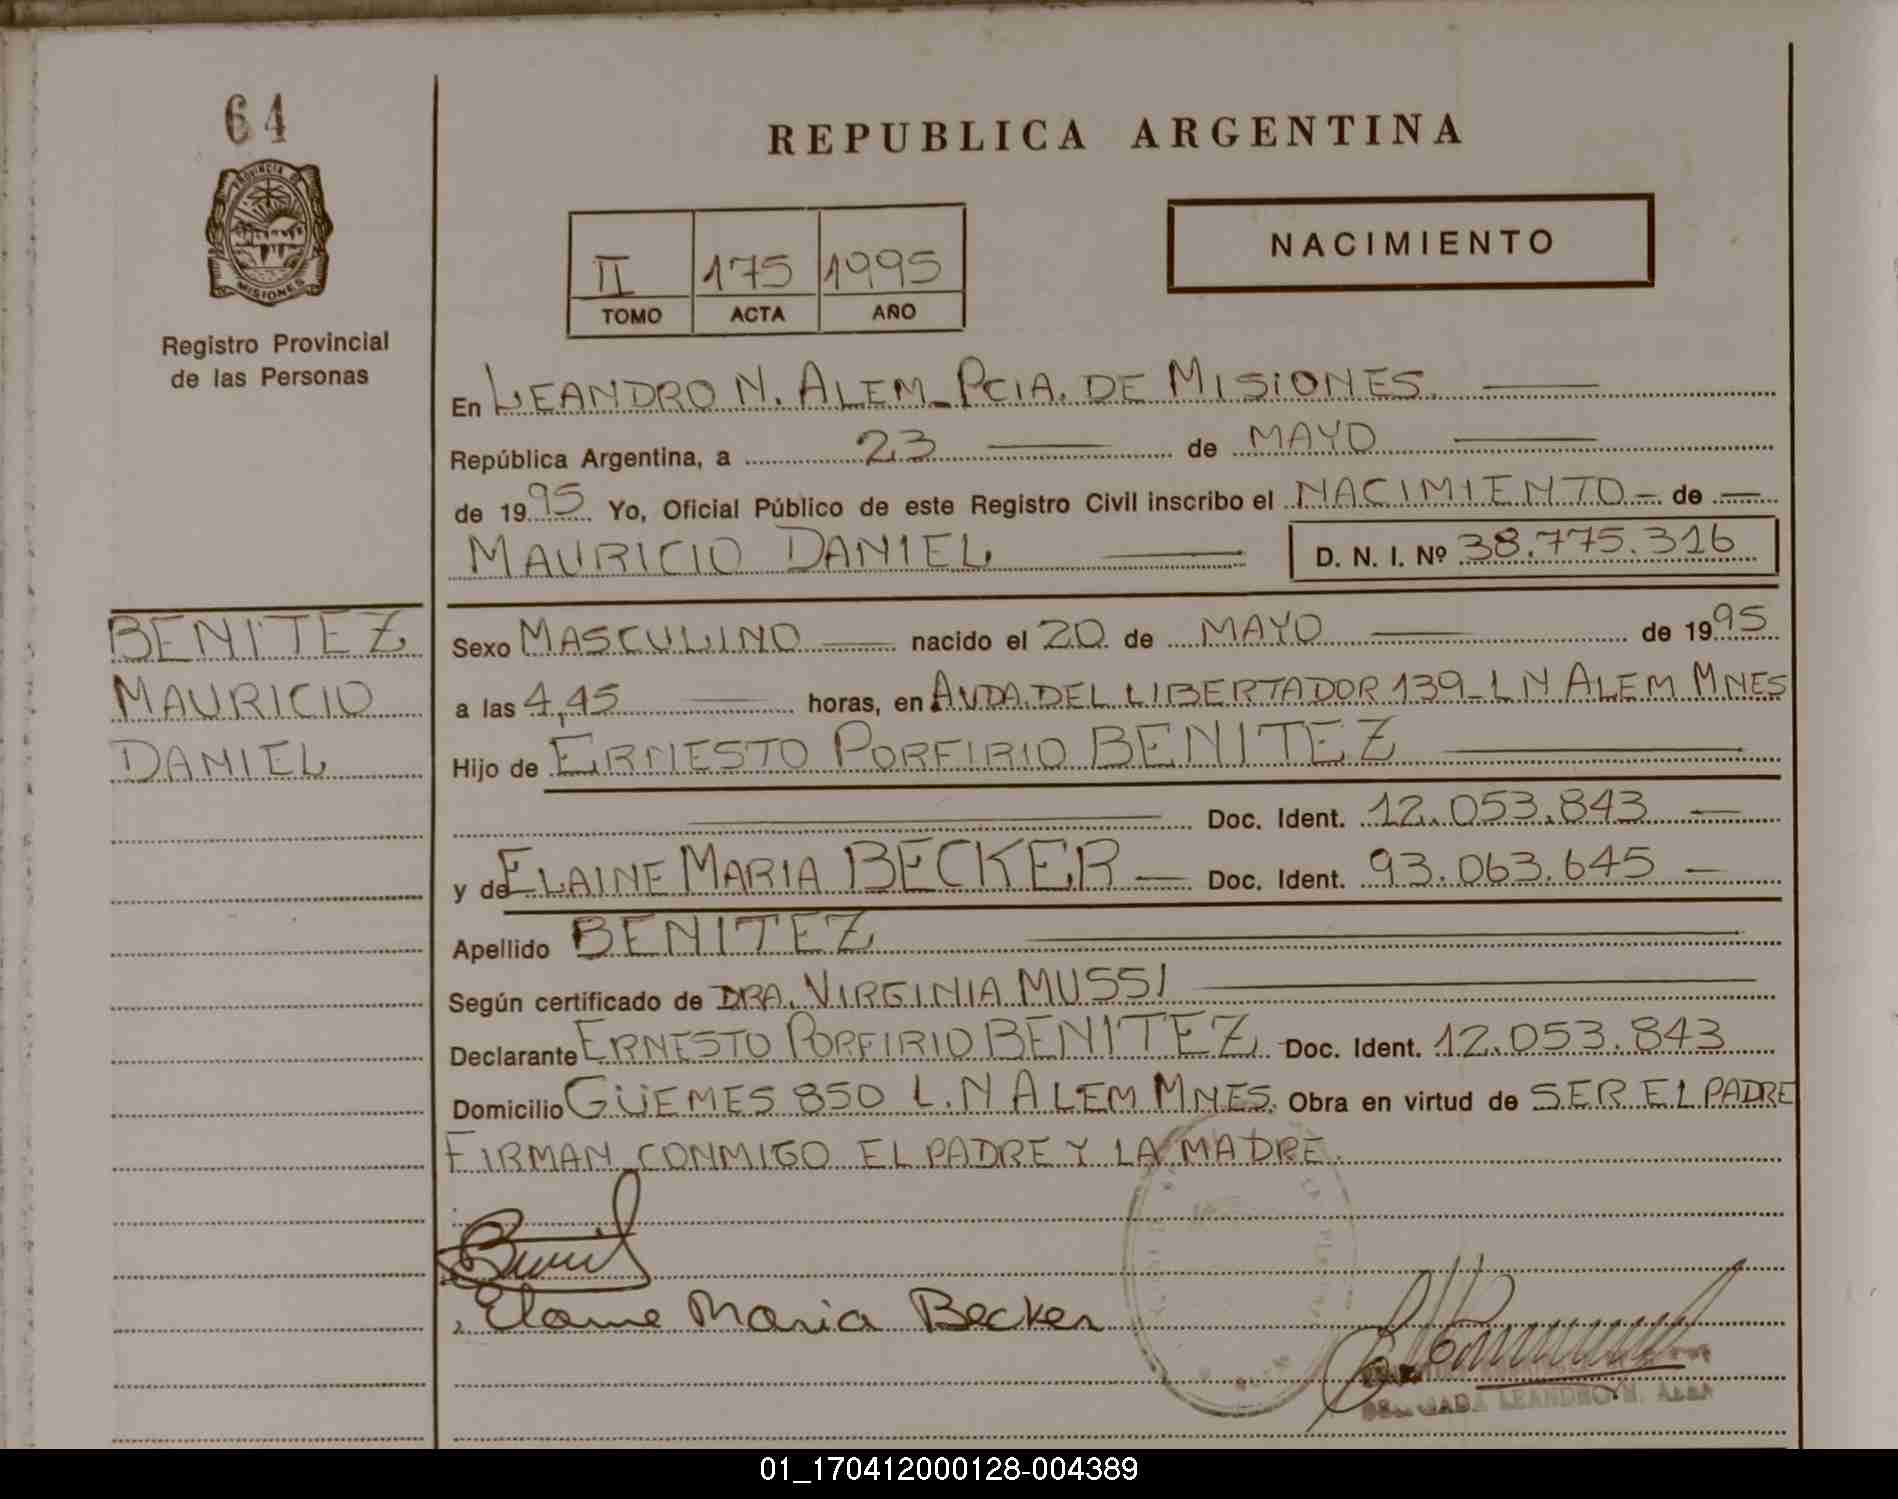 64
PROVINCIA DE
MISIONES
Registro Provincial
de las Personas
REPUBLICA ARGENTINA
II 175 1995
TOMO ACTA AÑO
NACIMIENTO
En LEANDRO N. ALEM_PCIA. DE MISIONES.
República Argentina, a 23 de MAYO
de 1995 Yo, Oficial Público de este Registro Civil inscribo el NACIMIENTO - de
MAURICIO DANIEL D. N. I. Nº 38.775.316
BENITEZ
MAURICIO
DANIEL
Sexo MASCULINO nacido el 20 de MAYO de 1995
a las 4,45 horas, en AVDA. DEL LIBERTADOR 139_L N ALEM MNES
Hijo de ERNESTO PORFIRIO BENITEZ
Doc. Ident. 12.053.843
y de ELAINE MARIA BECKER Doc. Ident. 93.063.645
Apellido BENITEZ
Según certificado de DRA. VIRGINIA MUSSI
Declarante ERNESTO PORFIRIO BENITEZ Doc. Ident. 12.053.843
Domicilio GÜEMES 850 L.N ALEM MNES. Obra en virtud de SER EL PADRE
FIRMAN CONMIGO EL PADRE Y LA MADRE.
Elaine Maria Becker
LEANDRO N. ALEM
01_170412000128-004389